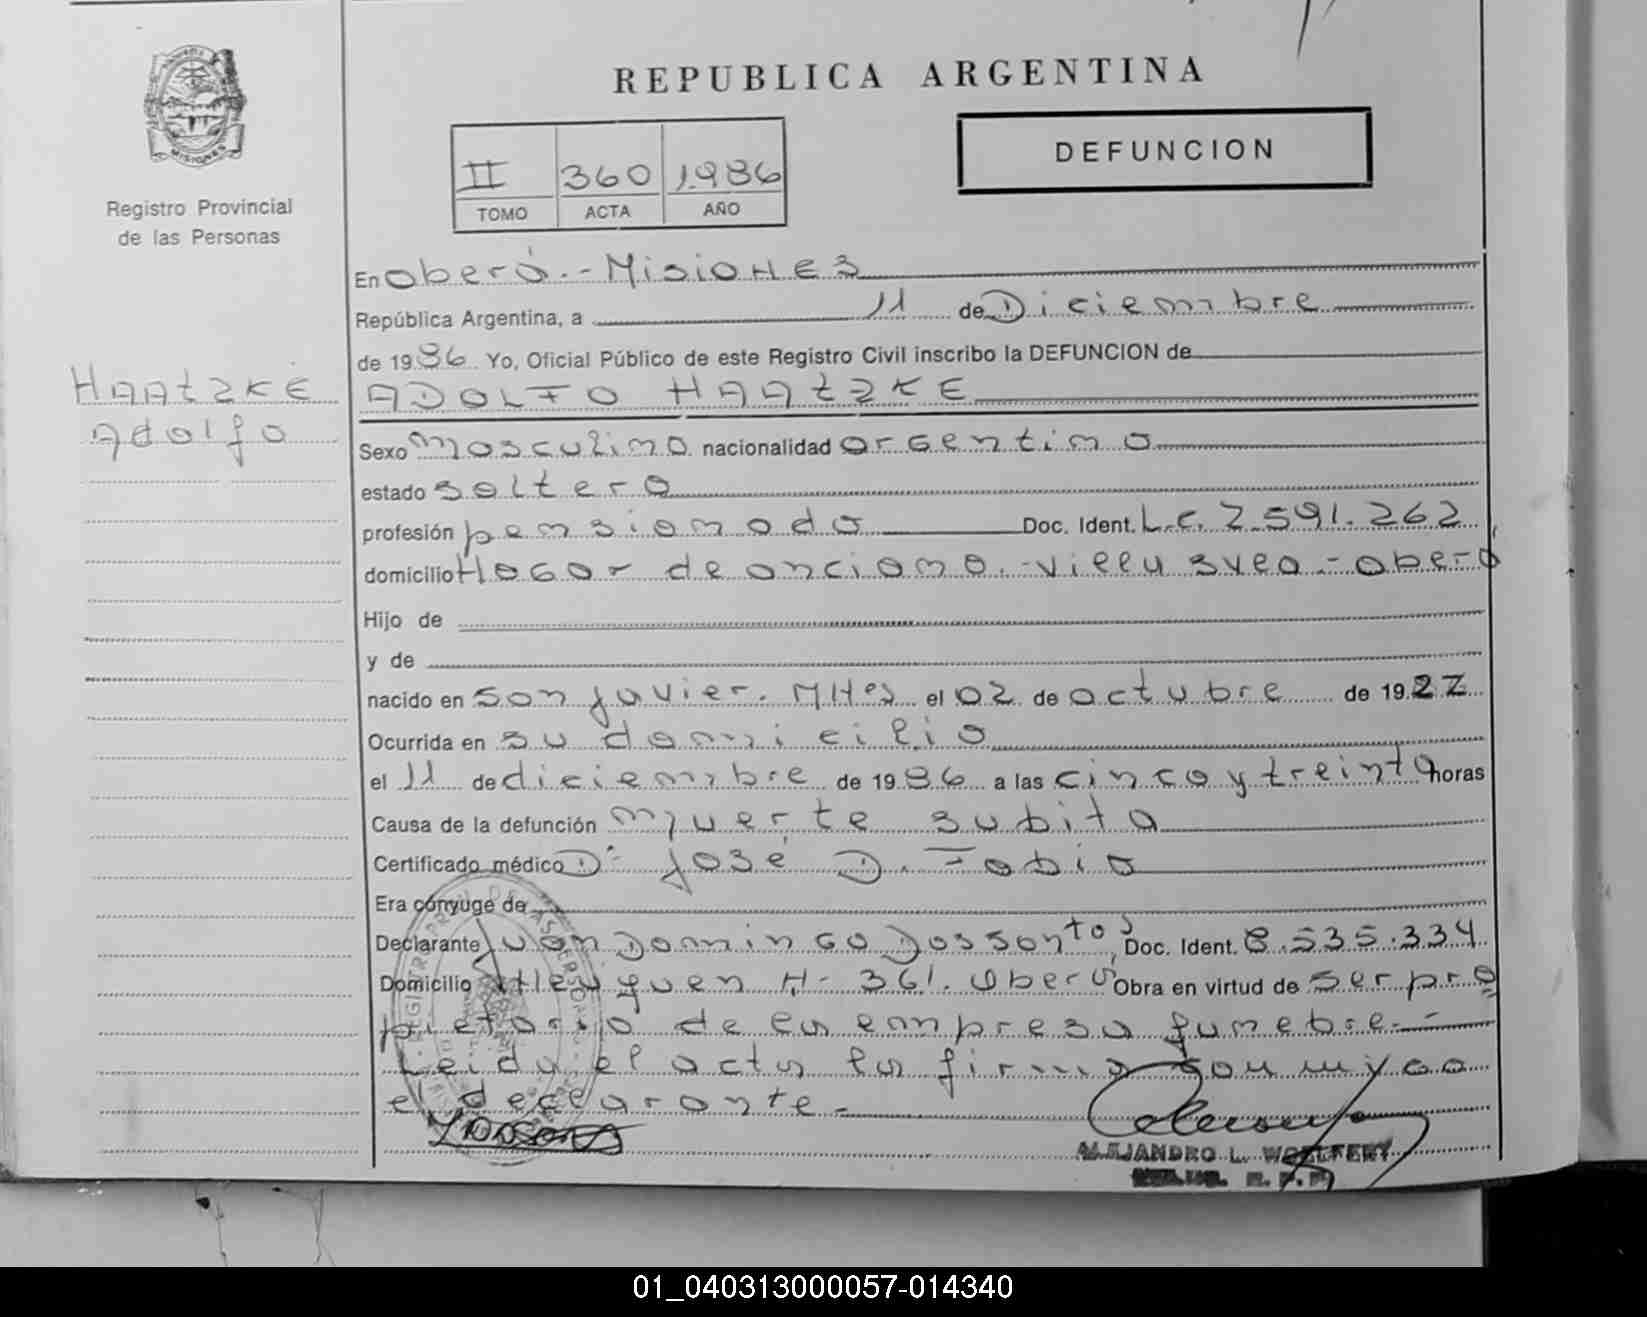 REPUBLICA ARGENTINA
MISIONES
Registro Provincial
de las Personas
II 360 1.986
TOMO ACTA AÑO
DEFUNCION
En oberá.-Misiones
República Argentina, a 11 de Diciembre
de 1986 Yo, Oficial Público de este Registro Civil inscribo la DEFUNCION de
Haatzke
Adolfo
ADOLFO HAATZKE
Sexo masculino nacionalidad argentino
estado soltero
profesión pensionado Doc. Ident. L.E. 7.591.262
domicilio Hogar de anciano.-villa svea.-oberá
Hijo de
y de
nacido en san javier. Mnes el 02 de octubre de 1922
Ocurrida en su domicilio
el 11 de diciembre de 1986 a las cinco y treinta horas
Causa de la defunción muerte subita
Certificado médico Dr José D. Fabio
Era cónyuge de
Declarante Juan Domingo Dos santos, Doc. Ident. 8.535.334
Domicilio Neuquen N- 361. Oberá Obra en virtud de ser pro
pietario de la empresa funebre.-
Leida el acta la firma conmigo
el declarante.-
ALEJANDRO L. WOELFERT
01_040313000057-014340